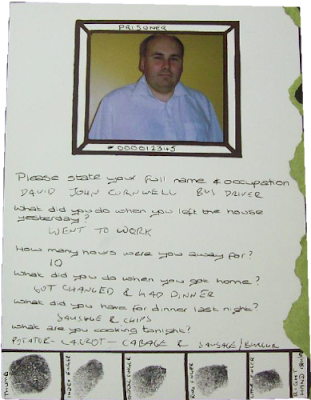 PRISONER
000012345
Please state your full name & occupation
DAVID JOHN CURNWELL BUS DRIVER
What did you do when you left the house
yesterday?
WENT TO WORK
How many hours were you away for?
10
What did you do when you got home?
GOT CHANGED & HAD DINNER
What did you have for dinner last night?
SAUSAGE & CHIPS
What are you cooking tonight?
POTATOE - CARROT - CABAGE & SAUSAGE/BURGER
THUMB
INDEX FINGER
FINGER
RING FINGER
FINGER
RIGHT
HAND